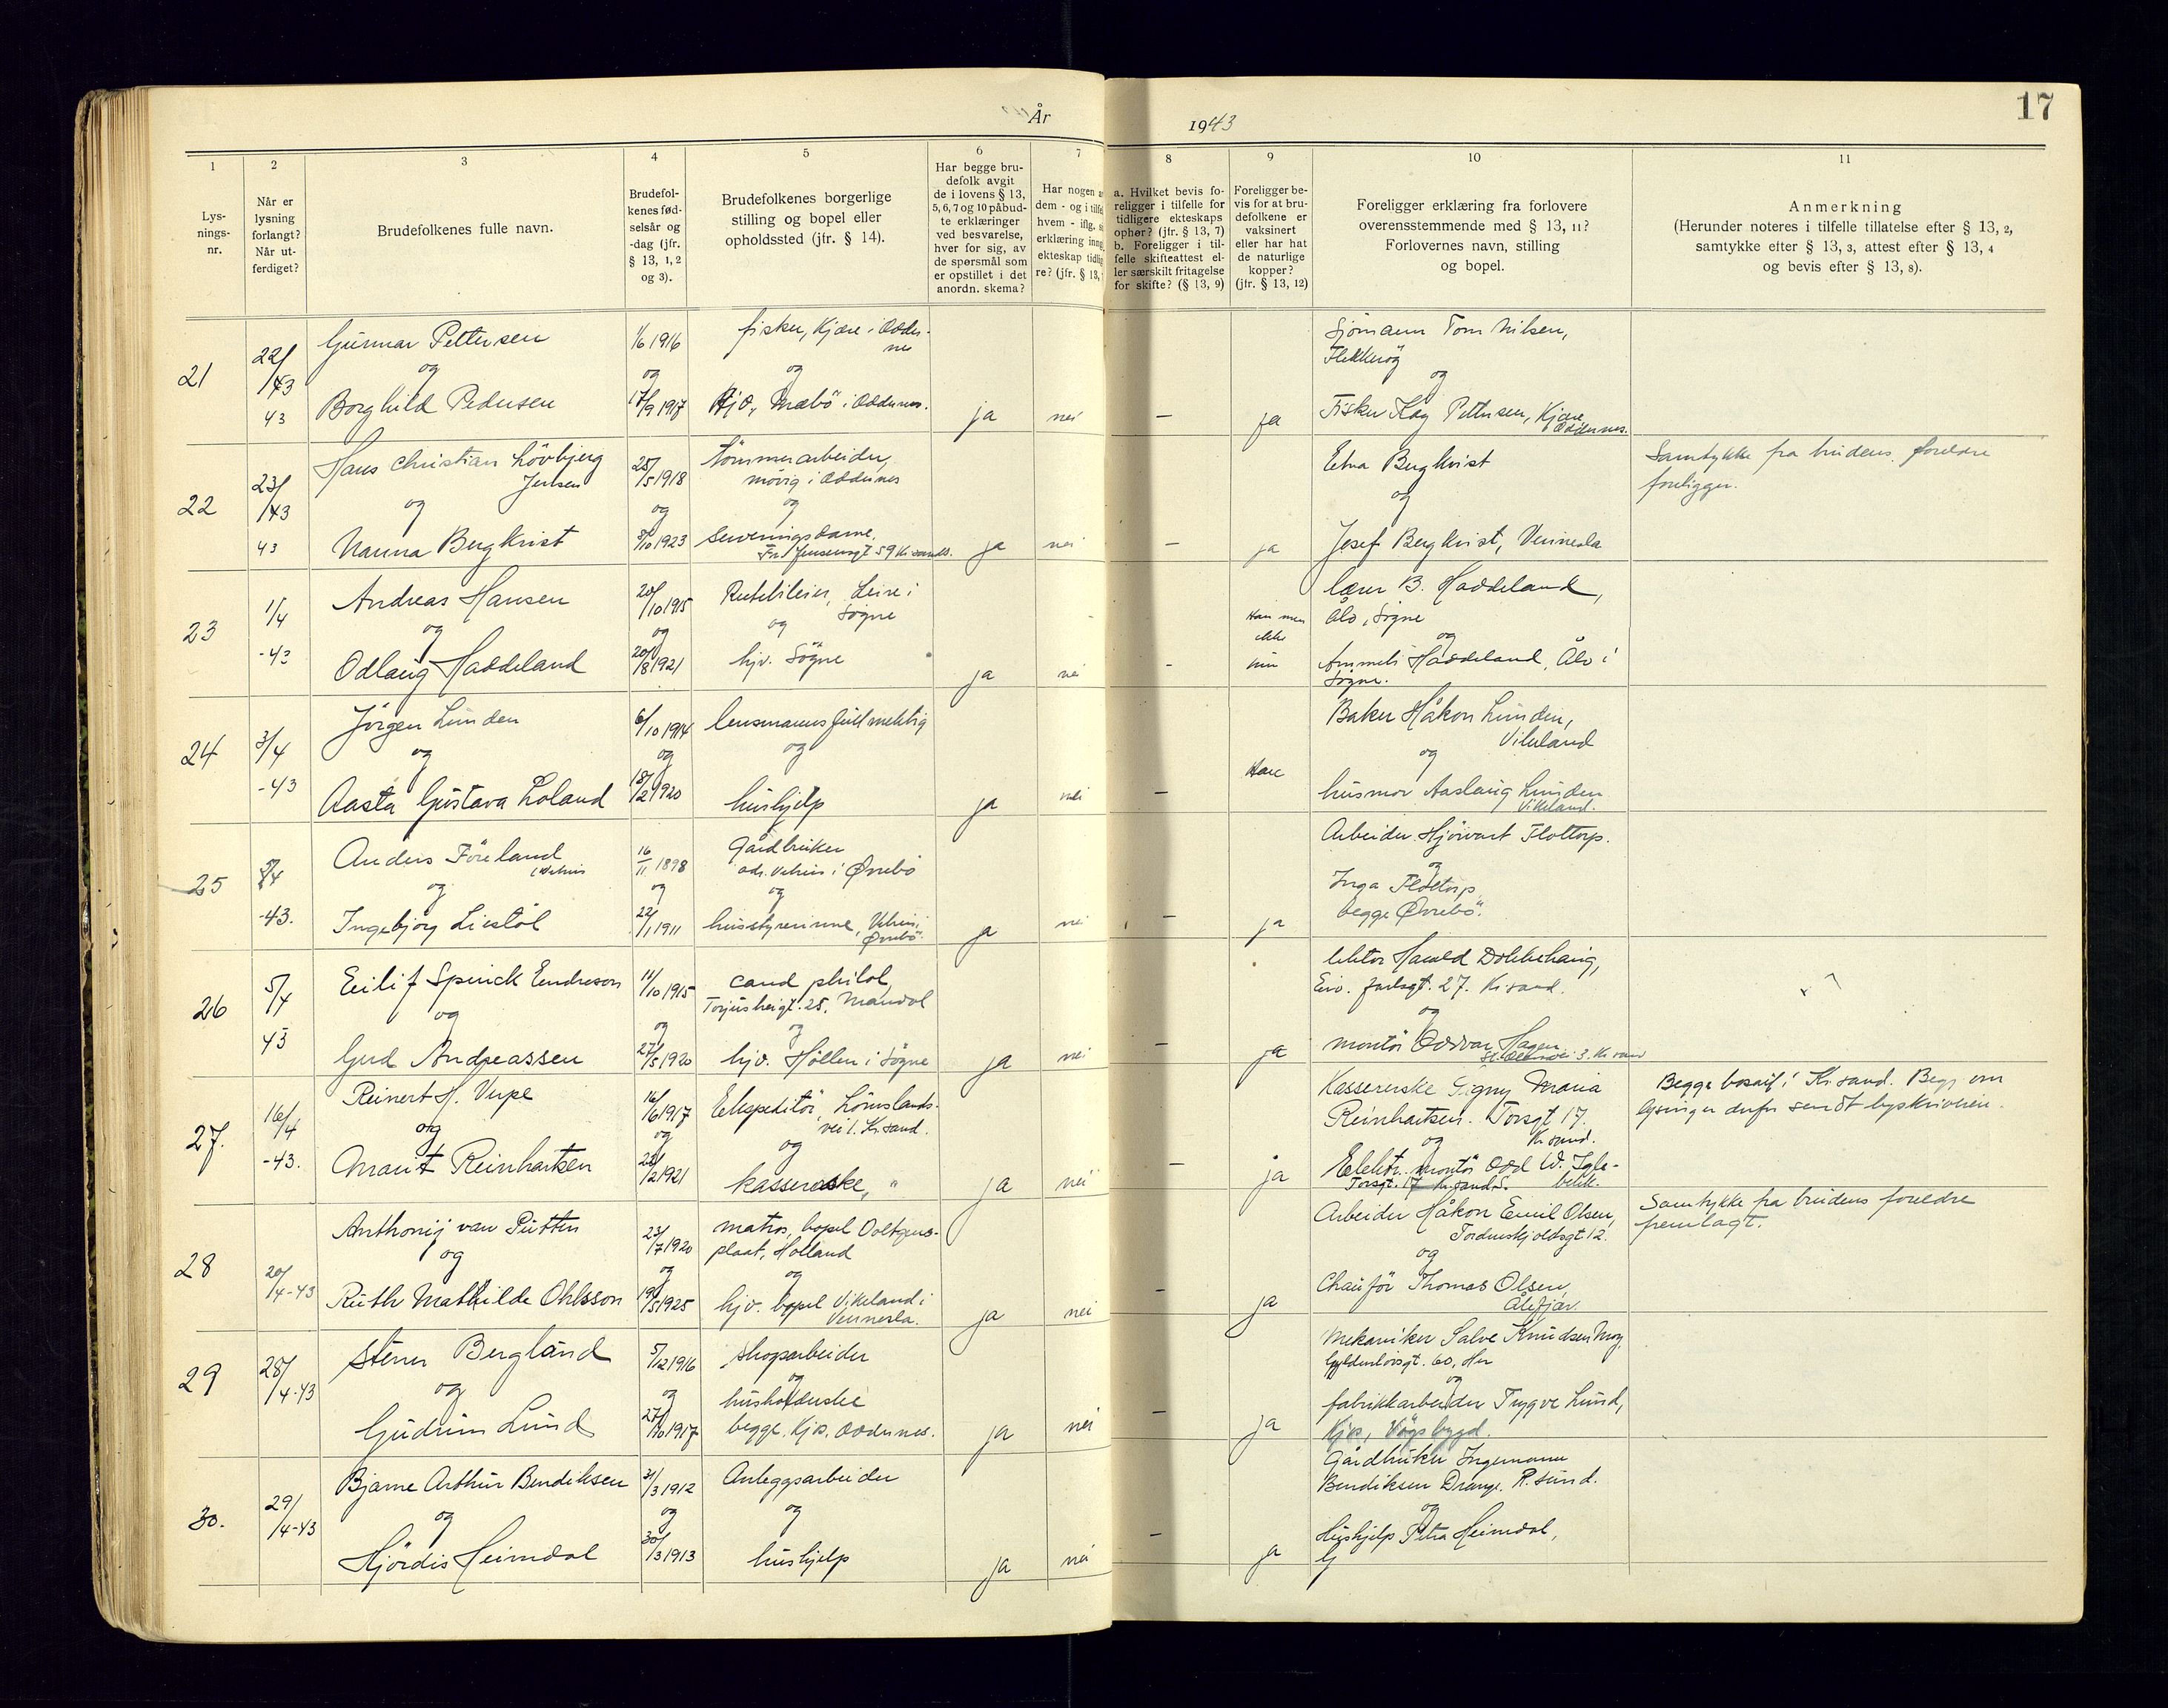 År 1943
17
1
2
3
4
5
6
7
8
9
10
11
Lys-
nings-
nr.
Når er
lysning
forlangt?
Når ut-
ferdiget?
Brudefolkenes fulle navn.
Brudefol-
kenes fød-
selsår og
-dag (jfr.
§ 13, 1, 2
og 3).
Brudefolkenes borgerlige
stilling og bopel eller
opholdssted (jfr. § 14).
Har begge bru-
defolk avgit
de i lovens § 13,
5, 6, 7 og 10 påbud-
te erklæringer
ved besvarelse,
hver for sig, av
de spørsmål som
er opstillet i det
anordn. skema?
Har nogen
dem - og i tilfe
hvem - iflg.
erklæring inng
ekteskap tidlig
re? (jfr. § 13,
a. Hvilket bevis fo-
religger i tilfelle for
tidligere ekteskaps
ophør? (jfr. § 13, 7)
b. Foreligger i til-
felle skifteattest el-
ler særskilt fritagelse
for skifte? (§ 13, 9)
Foreligger be-
vis for at bru-
defolkene er
vaksinert
eller har hat
de naturlige
kopper?
(jfr. § 13, 12)
Foreligger erklæring fra forlovere
overensstemmende med § 13, 11?
Forlovernes navn, stilling
og bopel.
Anmerkning
(Herunder noteres i tilfelle tillatelse efter § 13, 2,
samtykke efter § 13, 3, attest efter § 13, 4
og bevis efter § 13, 8).
21
22/
/43
43
Gunnar Pettersen
og
Borghild Pedersen
1/6 1916
og
17/9 1917
fisker, Kjære i Odder-
nes
og
Hjv., Mæbö i Oddernes.
ja
nei
—
ja
Sjömann Tom Nilsen,
Flekkeröy
og
Fisker Kay Pettersen, Kjære
Oddernes.
22
23/
/43
43
Hans Christian Lövbjerg
Jensen
og
Nanna Bergkvist
25/5 1918
og
/10 1923
tömmerarbeider,
mövig i Oddernes
og
serveringsdame.
Jensensgt 59 Kr.sands.
ja
nei
—
ja
Edva Bergkvist
og
Josef Bergkvist, Vennesla
Samtykke fra brudens foreldre
foreligger.
23
1/4
-43
Andreas Hansen
og
Odlaug Haddeland
20/10 1915
og
20/8 1921
Rutebileier, Leire i
Søgne
og
hjv. Sögne
ja
nei
-
Han men
ikke
hun
lærer B. Haddeland,
Ålo, Søgne
og
Haddeland, Ålo i
Søgne.
24
3/4
-43
Jörgen Lunden
og
Aasta Gustava Loland
6/10 1914
og
18/2 1920
lensmannsfullmektig
og
hushjelp
ja
nei
—
Baker Håkon Lunden,
Vikeland
og
husmor Aaslaug Lunden
Vikeland.
25
5/4
-43.
Anders Föreland
og
Ingebjörg Liestöl
16/11 1898
og
22/1 1911
Gårdbruker
i Øvrebö
og
husstyrerinne,
Øvrebö.
ja
nei
—
ja
Arbeider Hjövart Flottorp.
og
Inga Flottorp
begge Øvrebö.
26
5/4
43
Eilif Spinck Endreson
og
Gerd Andreassen
11/10 1915
og
27/5 1920
cand philol,
Torjusheigt. 25, Mandal
og
hjv. Höllen i Sögne
ja
nei
—
ja
lektor Harald Dokkehaug,
Eiv. Jarlsgt. 27. Kr.sand.
og
montör Oddvar Hagen
3. Kr sand
27.
16/4
-43.
Reinert H. Verpe
og
Marit Reinhartsen
16/6 1917
og
28/2 1921
Ekspeditör, Lömslands-
vei 1. Kr.sand.
og
kassererske, "
ja
nei
—
ja
Kassererske Signy Maria
Reinhartsen. Torsgt 17.
Kr.sand.
og
Elektr. montör Odd W. Igle-
bekk.
Torsgt. 17 Kr.sand S.
Begge bosatt i Kr.sand. Begj om
lysing er derfor sendt byskriveren.
28
20/
/4-43
Anthonij van Putten
og
Ruth Mathilde Ohlsson
23/7 1920
og
19/5 1925
matros, bopel Ooltgens-
plaat, Holland
og
hjv. bopel Vikeland i
Vennesla.
ja
nei
—
ja
Arbeider Håkon Emil Olsen,
Tordenskjoldsgt 12.
og
Chauför Thomas Olsen,
Ålefjær.
Samtykke fra brudens foreldre
fremlagt.
29
28/
/4-43
Stener Bergland
og
Gudrun Lund
5/12 1916
og
27/10 1917
skogsarbeider
og
husholderske
begge. Kjos. Oddernes.
ja
nei
—
ja
Mekaniker Salve Knudsen Moy,
Gyldenlövsgt. 60, Her
og
fabrikkarbeider Trygve Lund,
Kjos, Vågsbygd.
30.
29/
/4-43
Bjarne Arthur Bendiksen
og
Hjördis Heimdal
31/3 1912
og
30/3 1913
Anleggsarbeider
og
hushjelp
ja
nei
—
ja
Gårdbruker Ingemann
Bendiksen Drange. R.sund.
og
Hushjelp Petra Heimdal,